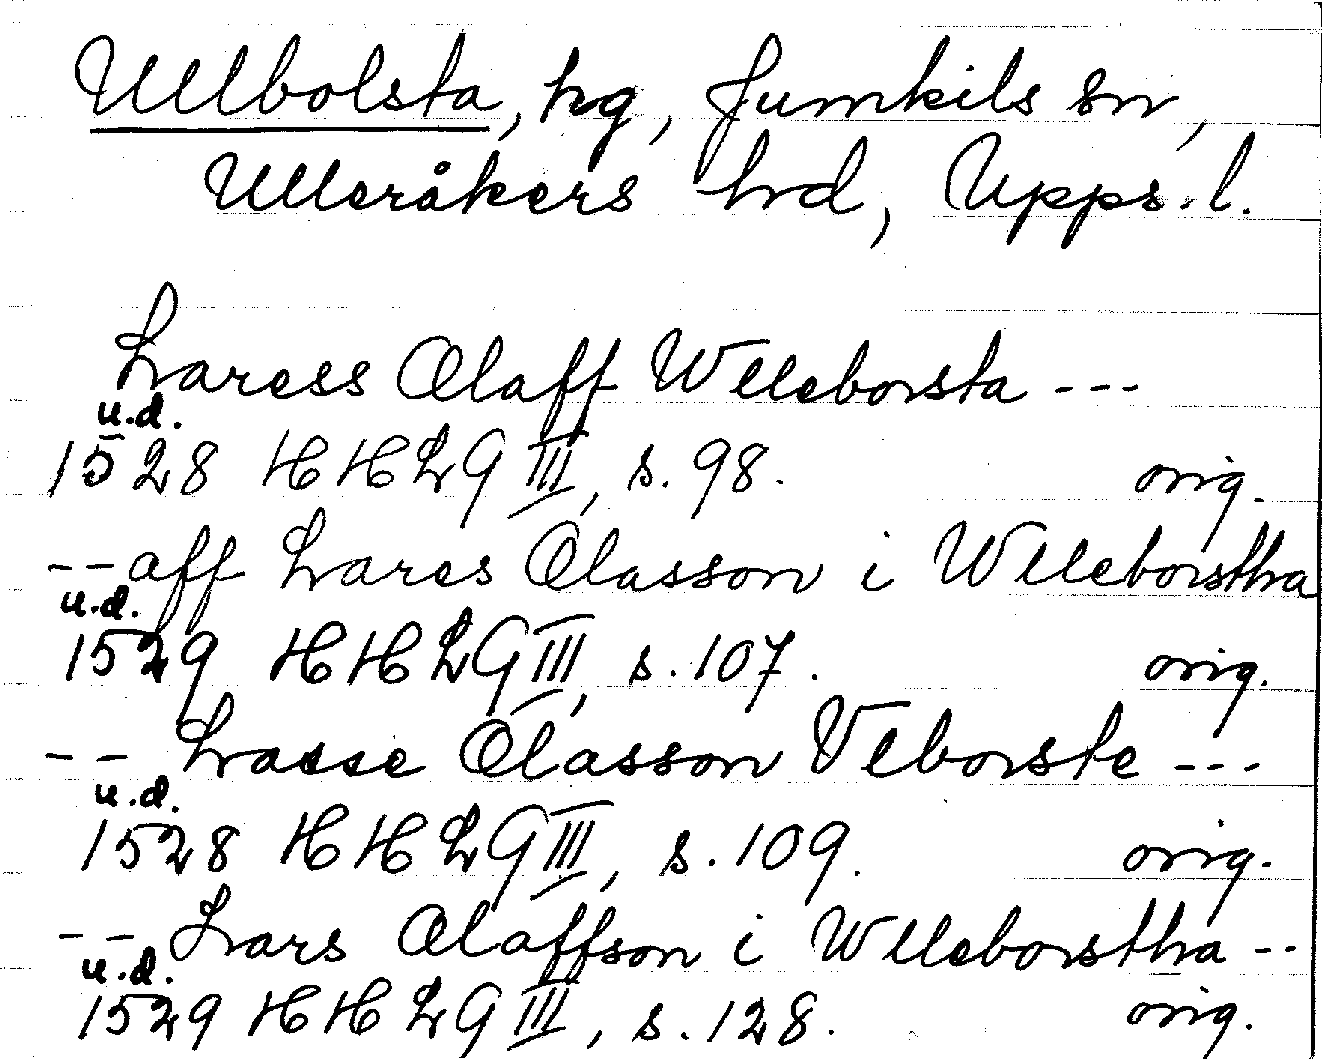 Ullbolsta, hg, Jumkils sn,
Ulleråkers hd, Upps. l.
Laress Olaff Wlleborsta ---
u.d.
1528 HHLG III, s. 98. orig.
-- aff Lares Olasson i Wlleborstha
u.d.
1529 HHLG III, s. 107. orig.
-- Lasse Olasson Vlborste ---
u.d.
1528 HHLG III, s. 109. orig.
-- Lars Olaffson i Wlleborstha --
u.d.
1529 HHLG III, s. 128. orig.